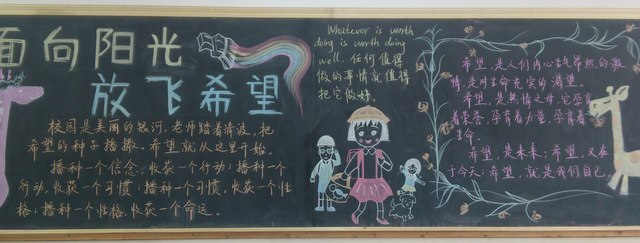 面向阳光
放飞希望
校园是美丽的银河,老师踏着清波,把
希望的种子播撒。希望就从这里开始。
播种一个信念,收获一个行动;播种一个
行动,收获一个习惯;播种一个习惯,收获一个性
格;播种一个性格,收获一个命运。
Whatever is worth
doing is worth doing
well. 任何值得
做的事情就值得
把它做好.
希望,是人们内心生气昂然的激
情,是对生命充实的渴望。
希望,是热情之母,它孕育
着荣誉,孕育着力量,孕育着
生命。
希望,是未来;希望,又在
于今天;希望,就是我们自己。